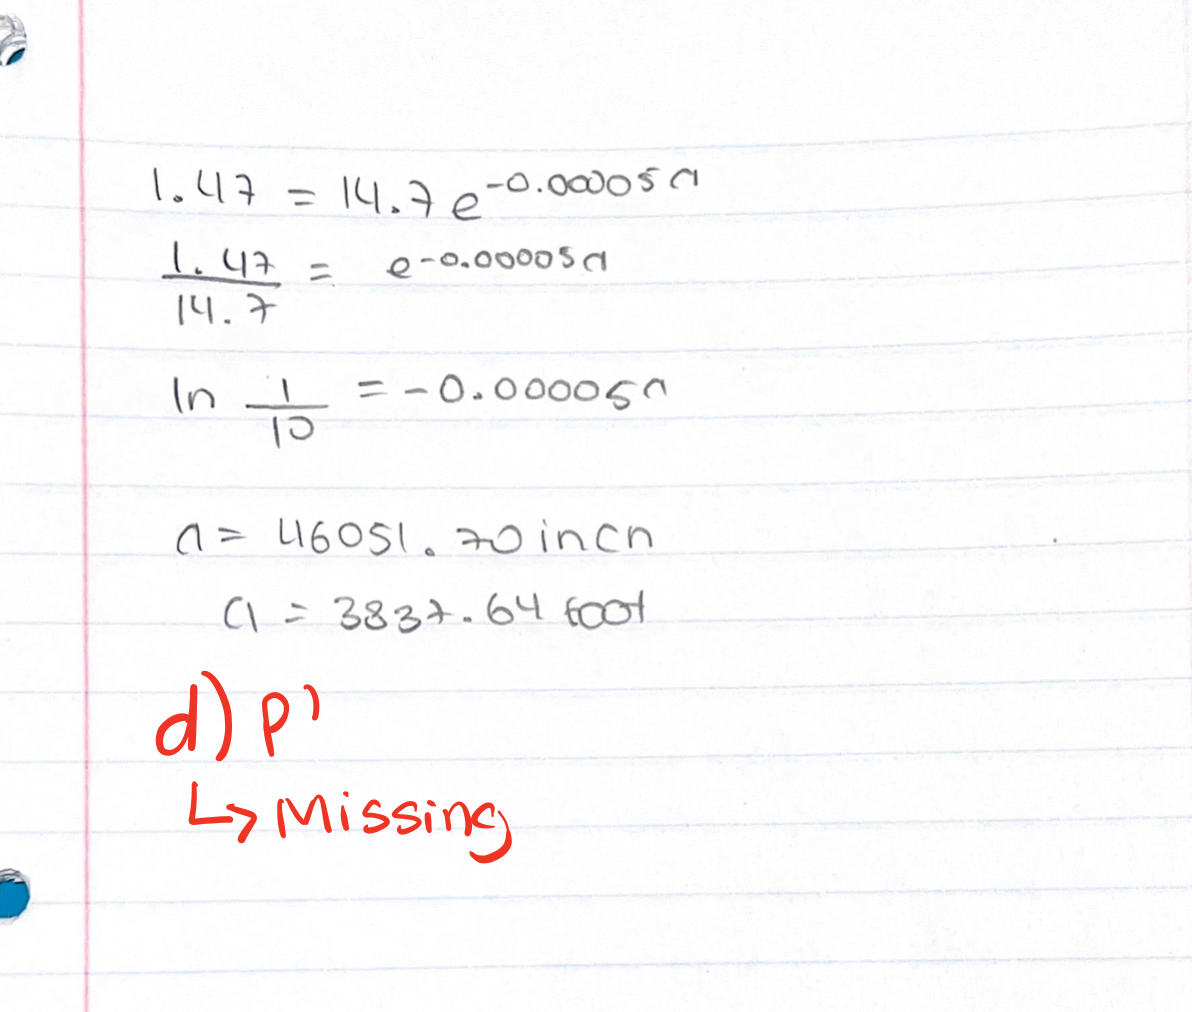 1.47 = 14.7 e^-0.00005a
1.47/14.7 = e^-0.00005a
ln 1/10 = -0.00005a
a = 46051.70 inch
a = 3837.64 foot
d) p'
↳ Missing